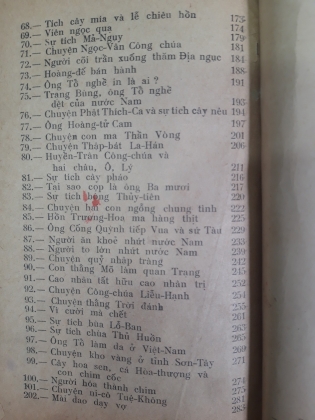 68.— Tích cây mía và lễ chiêu hồn 173
69.— Viên ngọc qua 174
70.— Sự tích Mả-Ngụy 179
71.— Chuyện Ngọc-Vân Công chúa 181
72.— Người cõi trần xuống thăm Địa ngục 184
73.— Hoàng-đế bán hành 188
74.— Ông Tổ nghề in là ai ? 191
75.— Trạng Bùng, ông Tổ nghề
dệt của nước Nam 193
76.— Chuyện Phật Thích-Ca và sự tích cây nêu 194
77.— Ông Hoàng-tử Cam 197
78.— Chuyện con ma Thần Vòng 201
79.— Chuyện Thập-bát La-Hán 206
80.— Huyền-Trân Công-chúa và
hai châu, Ô, Lý 211
81.— Sự tích cây pháo 216
82.— Tại sao cọp là ông Ba mươi 217
83.— Sự tích bông Thủy-tiên 220
84.— Chuyện hai con ngỗng chung tình 222
85.— Hồn Trương-Hoa ma hàng thịt 225
86.— Ông Cống Quỳnh tiếp Vua và sứ Tàu 229
87.— Người ăn khoẻ nhứt nước Nam 233
88.— Người to lớn nhứt nước Nam 239
89.— Chuyện quỷ nhập tràng 242
90.— Con thằng Mõ làm quan Trang 245
91.— Cao nhân tất hữu cao nhân trị 252
92.— Chuyện Công-chúa Liễu-Hạnh 254
93.— Chuyện thằng Trời đánh 255
94.— Vì cưới mà chết 261
95.— Sự tích bùa Lỗ-Ban 263
96.— Sự tích chùa Thủ Huồn 265
97.— Ông Tổ làm da ở Việt-Nam 269
98.— Chuyện kho vàng ở tỉnh Sơn-Tây 271
99.— Cây hoa sen, cá Hòa-thượng và
con chim cốc 274
100.— Người hóa thành chim 275
101.— Chuyện ni-cô Tuệ-Không 281
102.— Mài dao dạy vợ 288